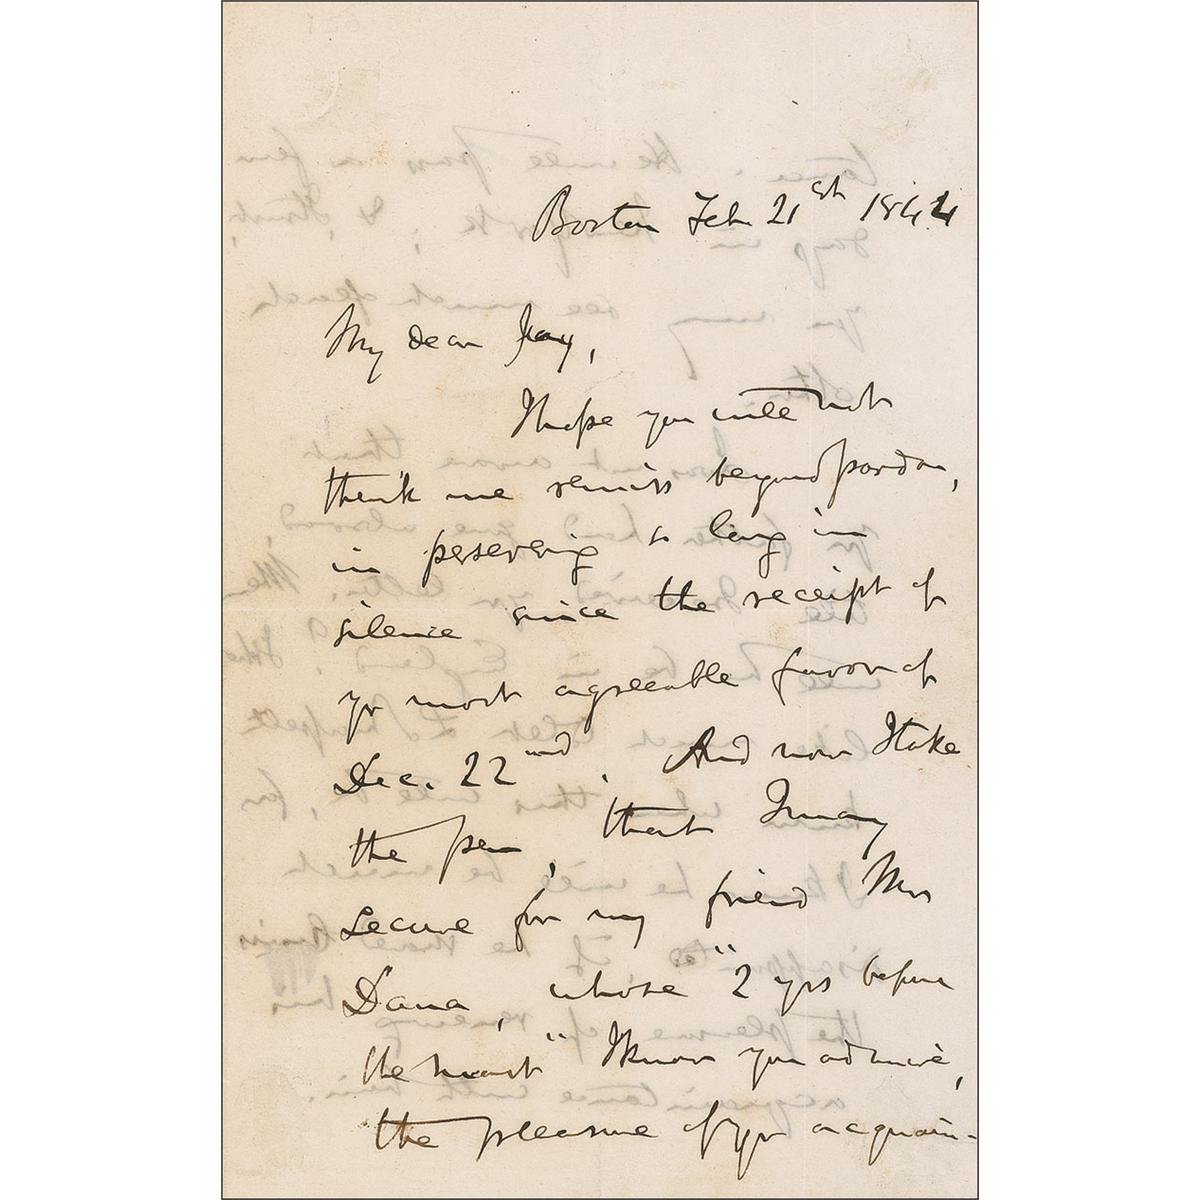 Boston Feb. 21st 1844
My dear Jay,
I hope you will not
think me remiss beyond pardon,
in persevering so long in
silence since the receipt of
yr most agreeable favor of
Dec. 22nd. And now I take
the pen, that I may
secure for my friend Mr
Dana, whose "2 yrs before
the mast" I know you admire,
the pleasure of yr acquain-